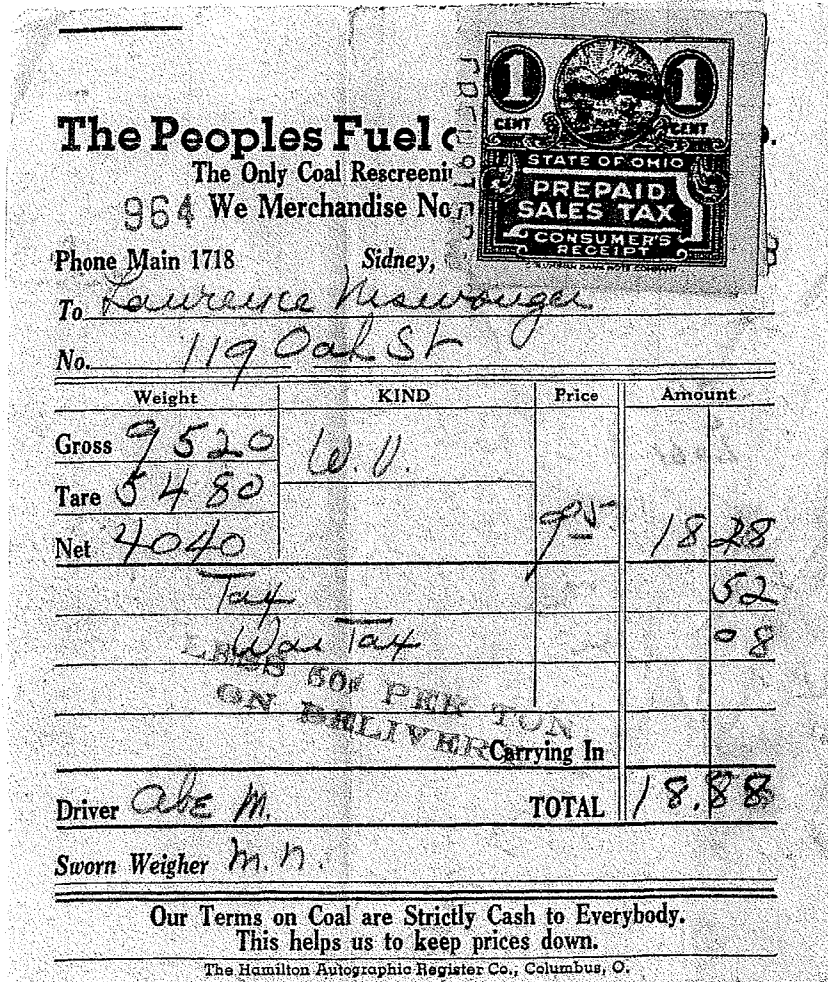 1 1
CENT CENT
STATE OF OHIO
PREPAID
SALES TAX
CONSUMER'S
RECEIPT
The Peoples Fuel
The Only Coal
964 We Merchandise
Phone Main 1718 Sidney,
To Lawrence Niswonger
No. 119 Oak St
Weight KIND Price Amount
Gross 9520 W. V.
Tare 5480
Net 4040 905 18 28
Tax 52
War Tax 08
LESS 50¢ PER TON
ON DELIVERY
Carrying In
Driver Abe M. TOTAL 18.88
Sworn Weigher M. N.
Our Terms on Coal are Strictly Cash to Everybody.
This helps us to keep prices down.
The Hamilton Autographic Register Co., Columbus, O.